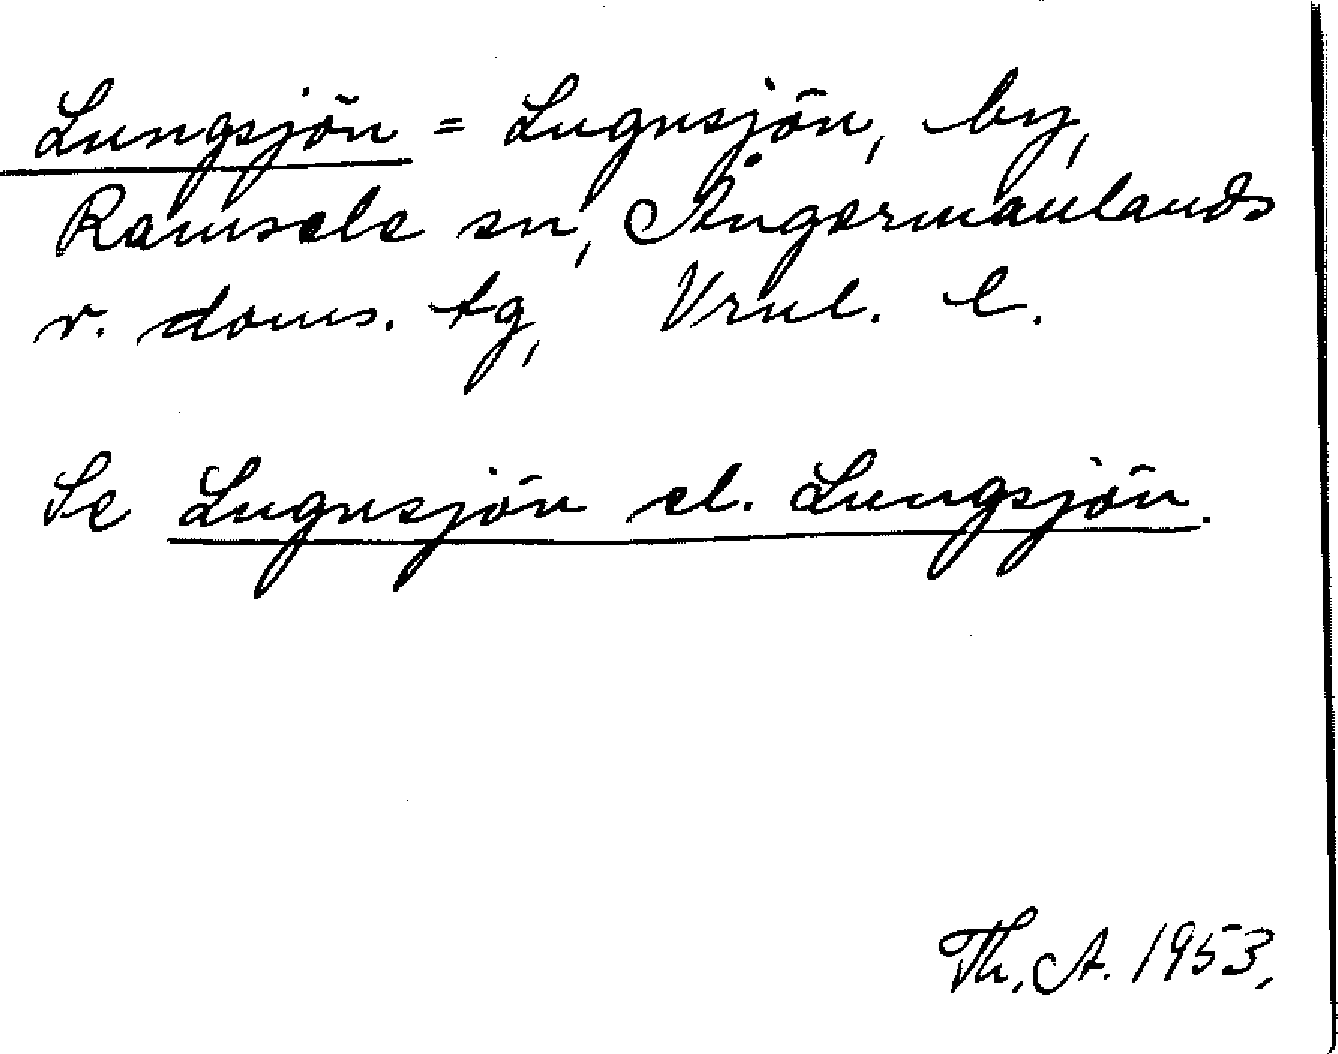 Lungsjön = Lugnsjön, by,
Ramsele sn, Ångermanlands
v. doms. tg, Vrnl. l.
Se Lugnsjön el. Lungsjön.
Th. A. 1953.